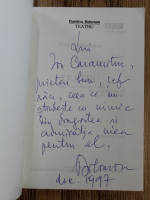 Dumitru Solomon
TEATRU
Lui
Ion Caramitru,
prieten bun, șef
rău, ceea ce nu
știrbește cu nimic
din dragostea și
admirația mea
pentru el,
D Solomon
dec. 1997